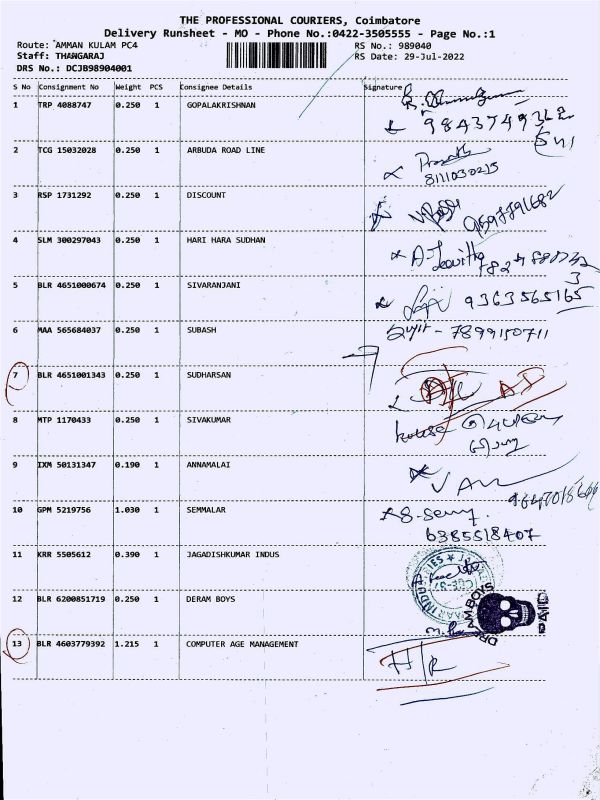 THE PROFESSIONAL COURIERS, Coimbatore
Delivery Runsheet - MO - Phone No.:0422-3505555 - Page No.:1
Route: AMMAN KULAM PC4 RS No.: 989040
Staff: THANGARAJ RS Date: 29-Jul-2022
DRS No.: DCJB98904001
S No Consignment No Weight PCS Consignee Details Signature
1 TRP 4088747 0.250 1 GOPALAKRISHNAN
9843749362
2 TCG 15032028 0.250 1 ARBUDA ROAD LINE
8111030215
3 RSP 1731292 0.250 1 DISCOUNT
4 SLM 300297043 0.250 1 HARI HARA SUDHAN
5 BLR 4651000674 0.250 1 SIVARANJANI
9363565165
6 MAA 565684037 0.250 1 SUBASH
7899150711
7
BLR 4651001343 0.250 1 SUDHARSAN
8 MTP 1170433 0.250 1 SIVAKUMAR
house
9 IXM 50131347 0.190 1 ANNAMALAI
10 GPM 5219756 1.030 1 SEMMALAR
6385518407
11 KRR 5505612 0.390 1 JAGADISHKUMAR INDUS
12 BLR 6200851719 0.250 1 DERAM BOYS
PAID
13 BLR 4603779392 1.215 1 COMPUTER AGE MANAGEMENT
H/R